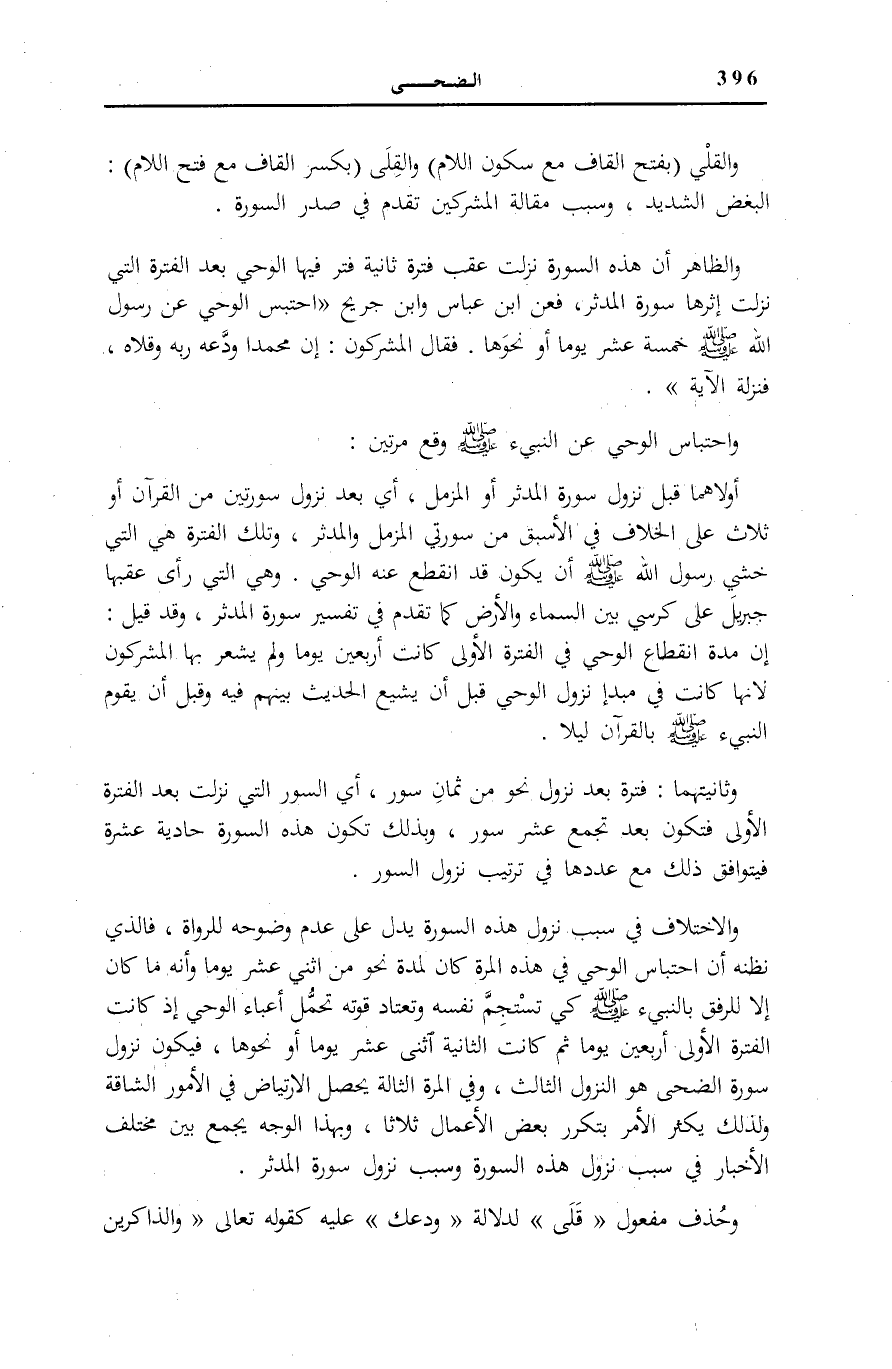 396
الـضـحـــــى
والقلْي (بفتح القاف مع سكون اللام) والقِلَى (بكسر القاف مع فتح اللام) :
البغض الشديد ، وسبب مقالة المشركين تقدم في صدر السورة .
والظاهر أن هذه السورة نزلت عقب فترة ثانية فتر فيها الوحي بعد الفترة التي
نزلت إثرها سورة المدثر، فعن ابن عباس وابن جريج «احتبس الوحي عن رسول
الله ﷺ خمسة عشر يوما أو نحوَها . فقال المشركون : إن محمدا ودَّعه ربه وقلاه ،
فنزلة الآية » .
واحتباس الوحي عن النبيء ﷺ وقع مرتين :
أولاهما قبل نزول سورة المدثر أو المزمل ، أي بعد نزول سورتين من القرآن أو
ثلاث على الخلاف في الأسبق من سورتي المزمل والمدثر ، وتلك الفترة هي التي
خشي رسول الله ﷺ أن يكون قد انقطع عنه الوحي . وهي التي رأى عقبها
جبريلَ على كرسي بين السماء والأرض كما تقدم في تفسير سورة المدثر ، وقد قيل :
إن مدة انقطاع الوحي في الفترة الأولى كانت أربعين يوما ولم يشعر بها المشركون
لانها كانت في مبدإ نزول الوحي قبل أن يشيع الحديث بينهم فيه وقبل أن يقوم
النبيء ﷺ بالقرآن ليلا .
وثانيتهما : فترة بعد نزول نحو من ثمانِ سور ، أي السور التي نزلت بعد الفترة
الأولى فتكون بعد تجمع عشر سور ، وبذلك تكون هذه السورة حادية عشرة
فيتوافق ذلك مع عددها في ترتيب نزول السور .
والاختلاف في سبب نزول هذه السورة يدل على عدم وضوحه للرواة ، فالذي
نظنه أن احتباس الوحي في هذه المرة كان لمدة نحو من اثني عشر يوما وأنه ما كان
إلا للرفق بالنبيء ﷺ كي تسْتجِمَّ نفسه وتعتاد قوته تحمُّل أعباء الوحي إذ كانت
الفترة الأولى أربعين يوما ثم كانت الثانية آثنى عشر يوما أو نحوها ، فيكون نزول
سورة الضحى هو النزول الثالث ، وفي المرة الثالة يحصل الارتياض في الأمور الشاقة
ولذلك يكثر الأمر بتكرر بعض الأعمال ثلاثا ، وبهذا الوجه يجمع بين مختلف
الأخبار في سبب نزول هذه السورة وسبب نزول سورة المدثر .
وحُذف مفعول « قَلَى » لدلالة « ودعك » عليه كقوله تعالى « والذاكرين